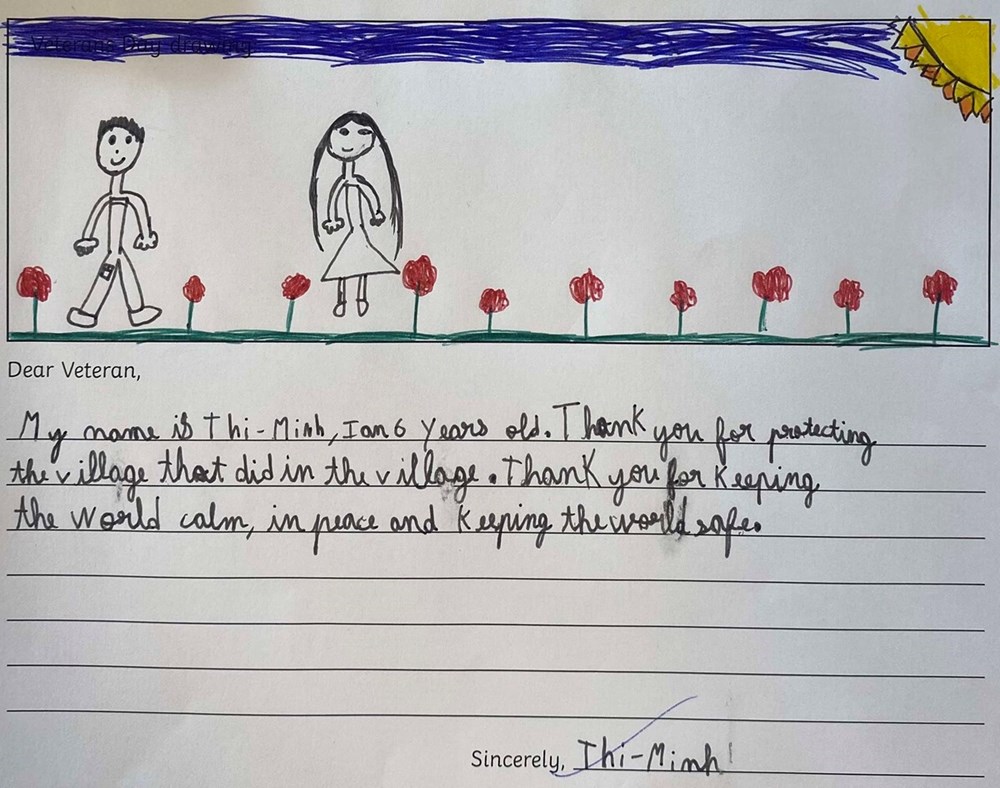 Veterans Day drawing:
Dear Veteran,
My name is Thi-Minh, I an 6 years old. Thank you for protecting
the village that did in the village. Thank you for Keeping
the World calm, in peace and Keeping the world safe.
Sincerely, Thi-Minh